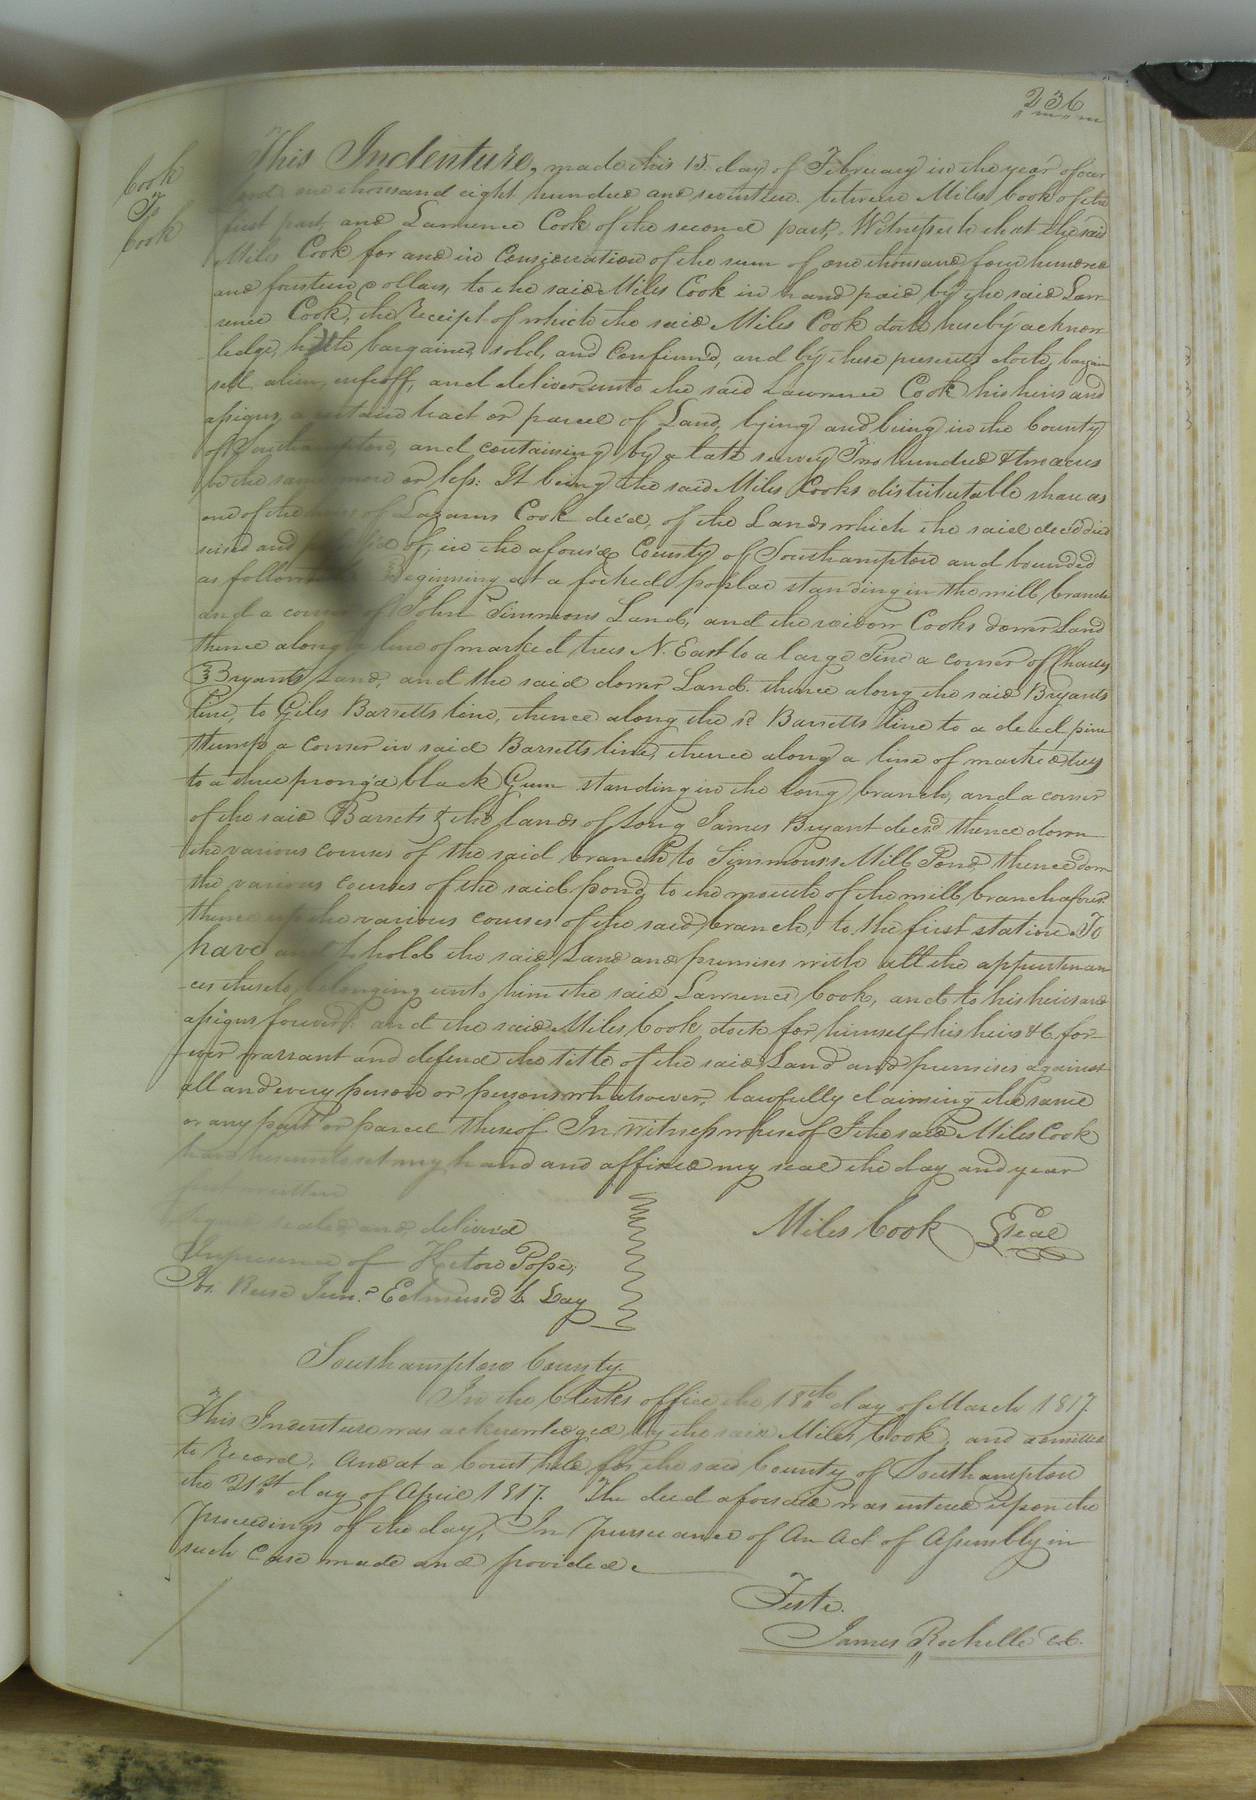 236
Cook
To
Cook
This Indenture, made this 15 day of February in the year of our
Lord one thousand eight hundred and seventeen between Miles Cook of the
first part, and Lawrence Cook of the second part, Witnesseth that the said
Miles Cook for and in Consideration of the sum of one thousand four hundred
and fourteen Dollars, to the said Miles Cook in hand paid by the said Law-
rence Cook, the Receipt of which the said Miles Cook doth hereby acknow
ledge, hath bargained, sold, and Confirmd, and by these presents doth, bargain
sell alien, enfeoff, and deliver unto the said Lawrence Cook his heirs and
assigns, a certain tract or parcel of Land, lying and being in the County
of Southampton, and containing by a late survey Two hundred & two acres
be the same more or less: It being the said Miles Cooks distributable share as
one of the heirs of Lazarus Cook decd, of the Lands which the said decd died
seised and of, in the aforesd County of Southampton and bounded
as follows Beginning at a forked poplar standing in the mill branch
and a corner of John Simmons Land, and the widow Cooks dower Land
thence along a line of marked trees N. East to a large Pine a corner of Charles
Bryants Land, and the said dower Land. thence along the said Bryants
line, to Giles Barretts line, thence along the sd Barretts line to a dead pine
stump a Corner in said Barretts line, thence along a line of marked trees
to a three prong'd black Gum standing in the long branch, and a corner
of the said Barrets & the lands of Long James Bryant decsd thence down
the various courses of the said branch to Simmons's Mill Pond, thence down
the various courses of the said pond, to the mouth of the mill branch aforesd
thence up the various courses of the said branch, to the first station. To
have and to hold the said Land and premises with all the appurtenan
ces thereto belonging unto him the said Lawrence Cook, and to his heirs and
assigns forever: and the said Miles Cook doth for himself his heirs &C for-
ever warrant and defend the title of the said Land and premises against
all and every person or persons whatsoever, lawfully claiming the same
or any part or parcel thereof In witness whereof I the said Miles Cook
have hereunto set my hand and affixed my seal the day and year
first written
Signed sealed and deliverd
In presence of Pope,
Jos. Junr Edmund Day
Miles Cook Seal
Southampton County.
In the Clerks office the 18th day of March 1817
This Indenture was acknowledged by the said Miles Cook, and admitted
to Record. And at a Court held for the said County of Southampton
the 21st day of April 1817. The deed aforesaid was entered upon the
proceedings of the day, In pursuance of An Act of Assembly in
such Case made and provided.
Teste.
James Rochelle CC.